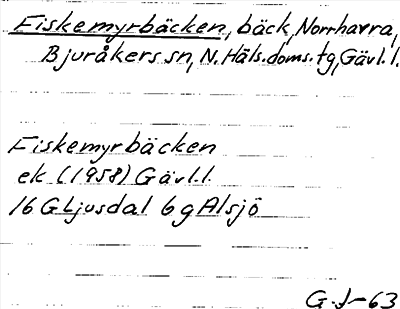 Fiskemyrbäcken, bäck, Norrhavra,
Bjuråkers sn, N. Häls. doms. tg, Gävl. l.
Fiskemyrbäcken
ek (1958) Gävl. l.
16 G Ljusdal 6 g Alsjö
G. J-63